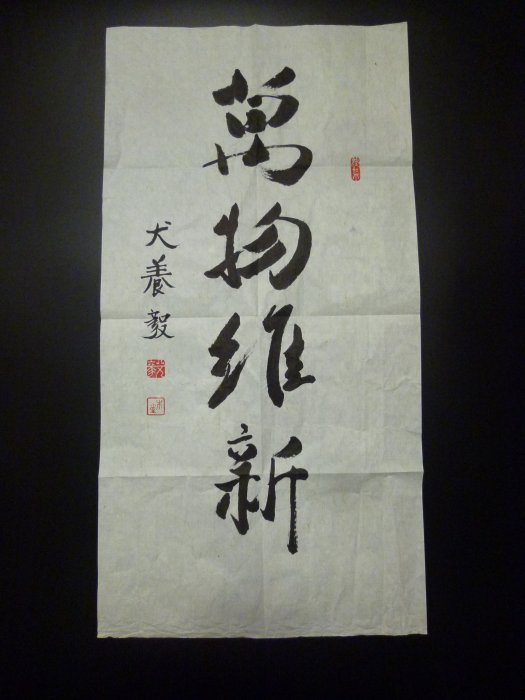 萬物維新
犬養毅